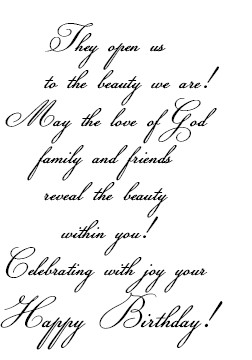 They open us
to the beauty we are!
May the love of God
family and friends
reveal the beauty
within you!
Celebrating with joy your
Happy Birthday!